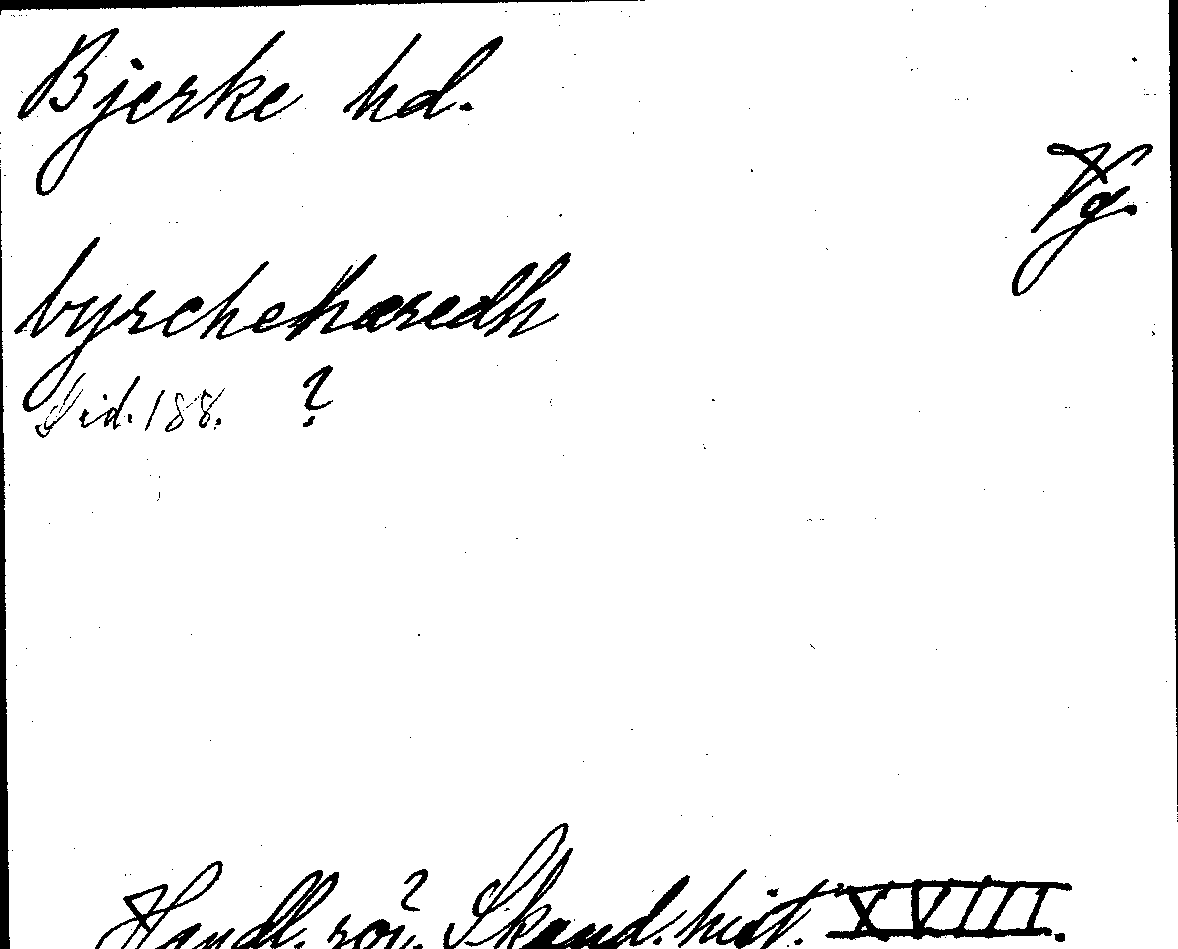 Bjerke hd.
Vg.
byrchehæredh
Sid. 188. ?
Handl. rör. Skand. hist. XVIII.